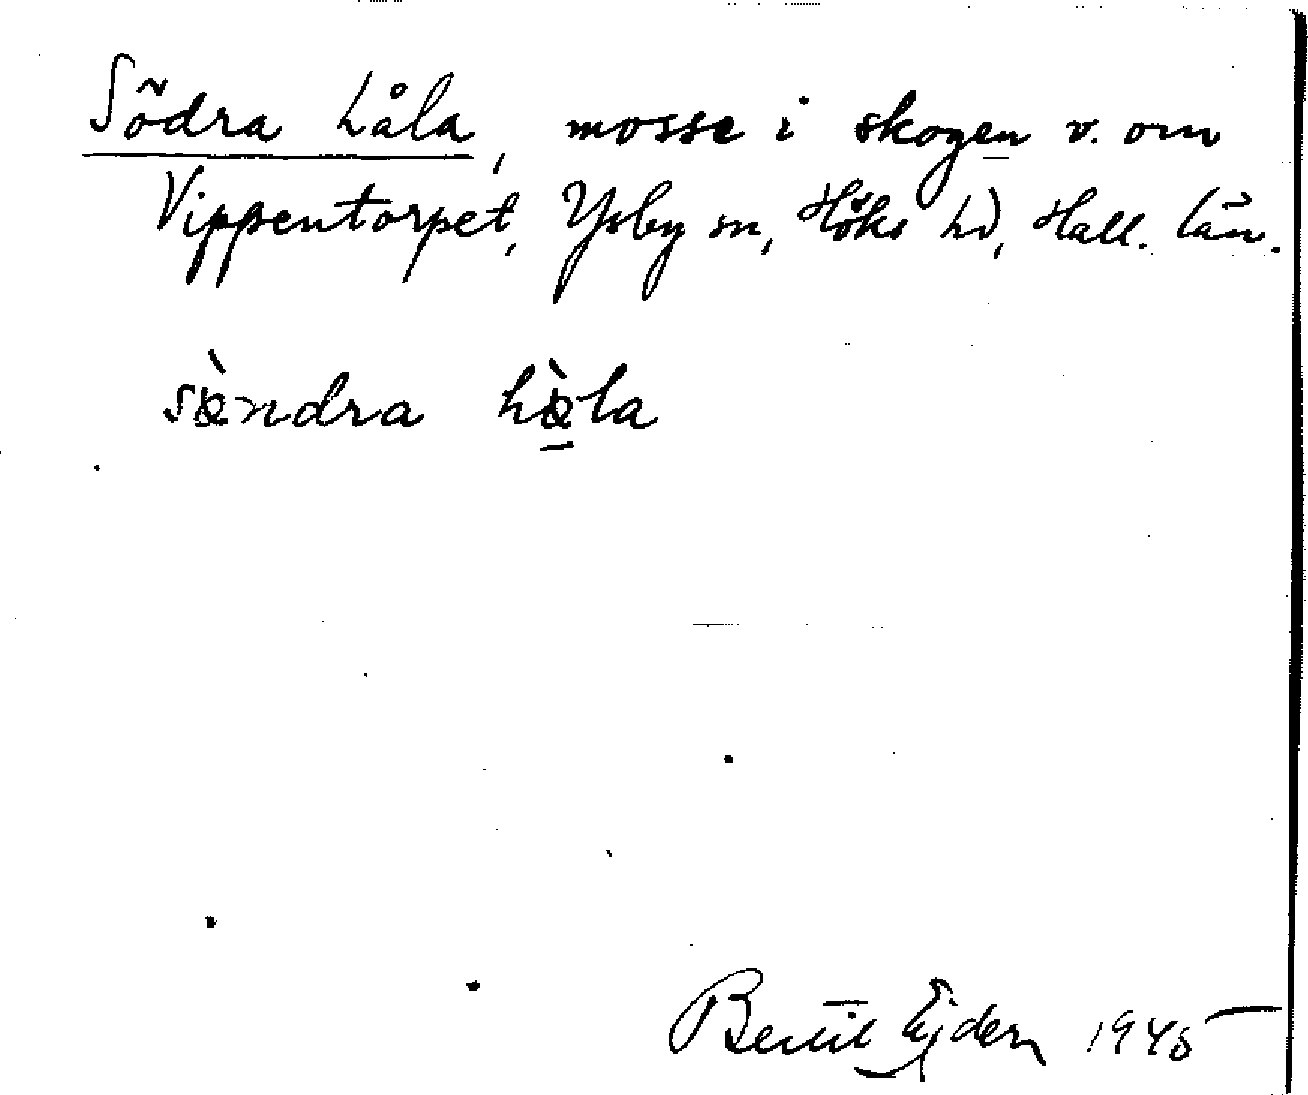 Södra håla, mosse i skogen v. om
Vippentorpet, Ysby sn, Höks hd, Hall. län.
sæ̀ndra hæ̠̀la
Bertil Ejder 1945